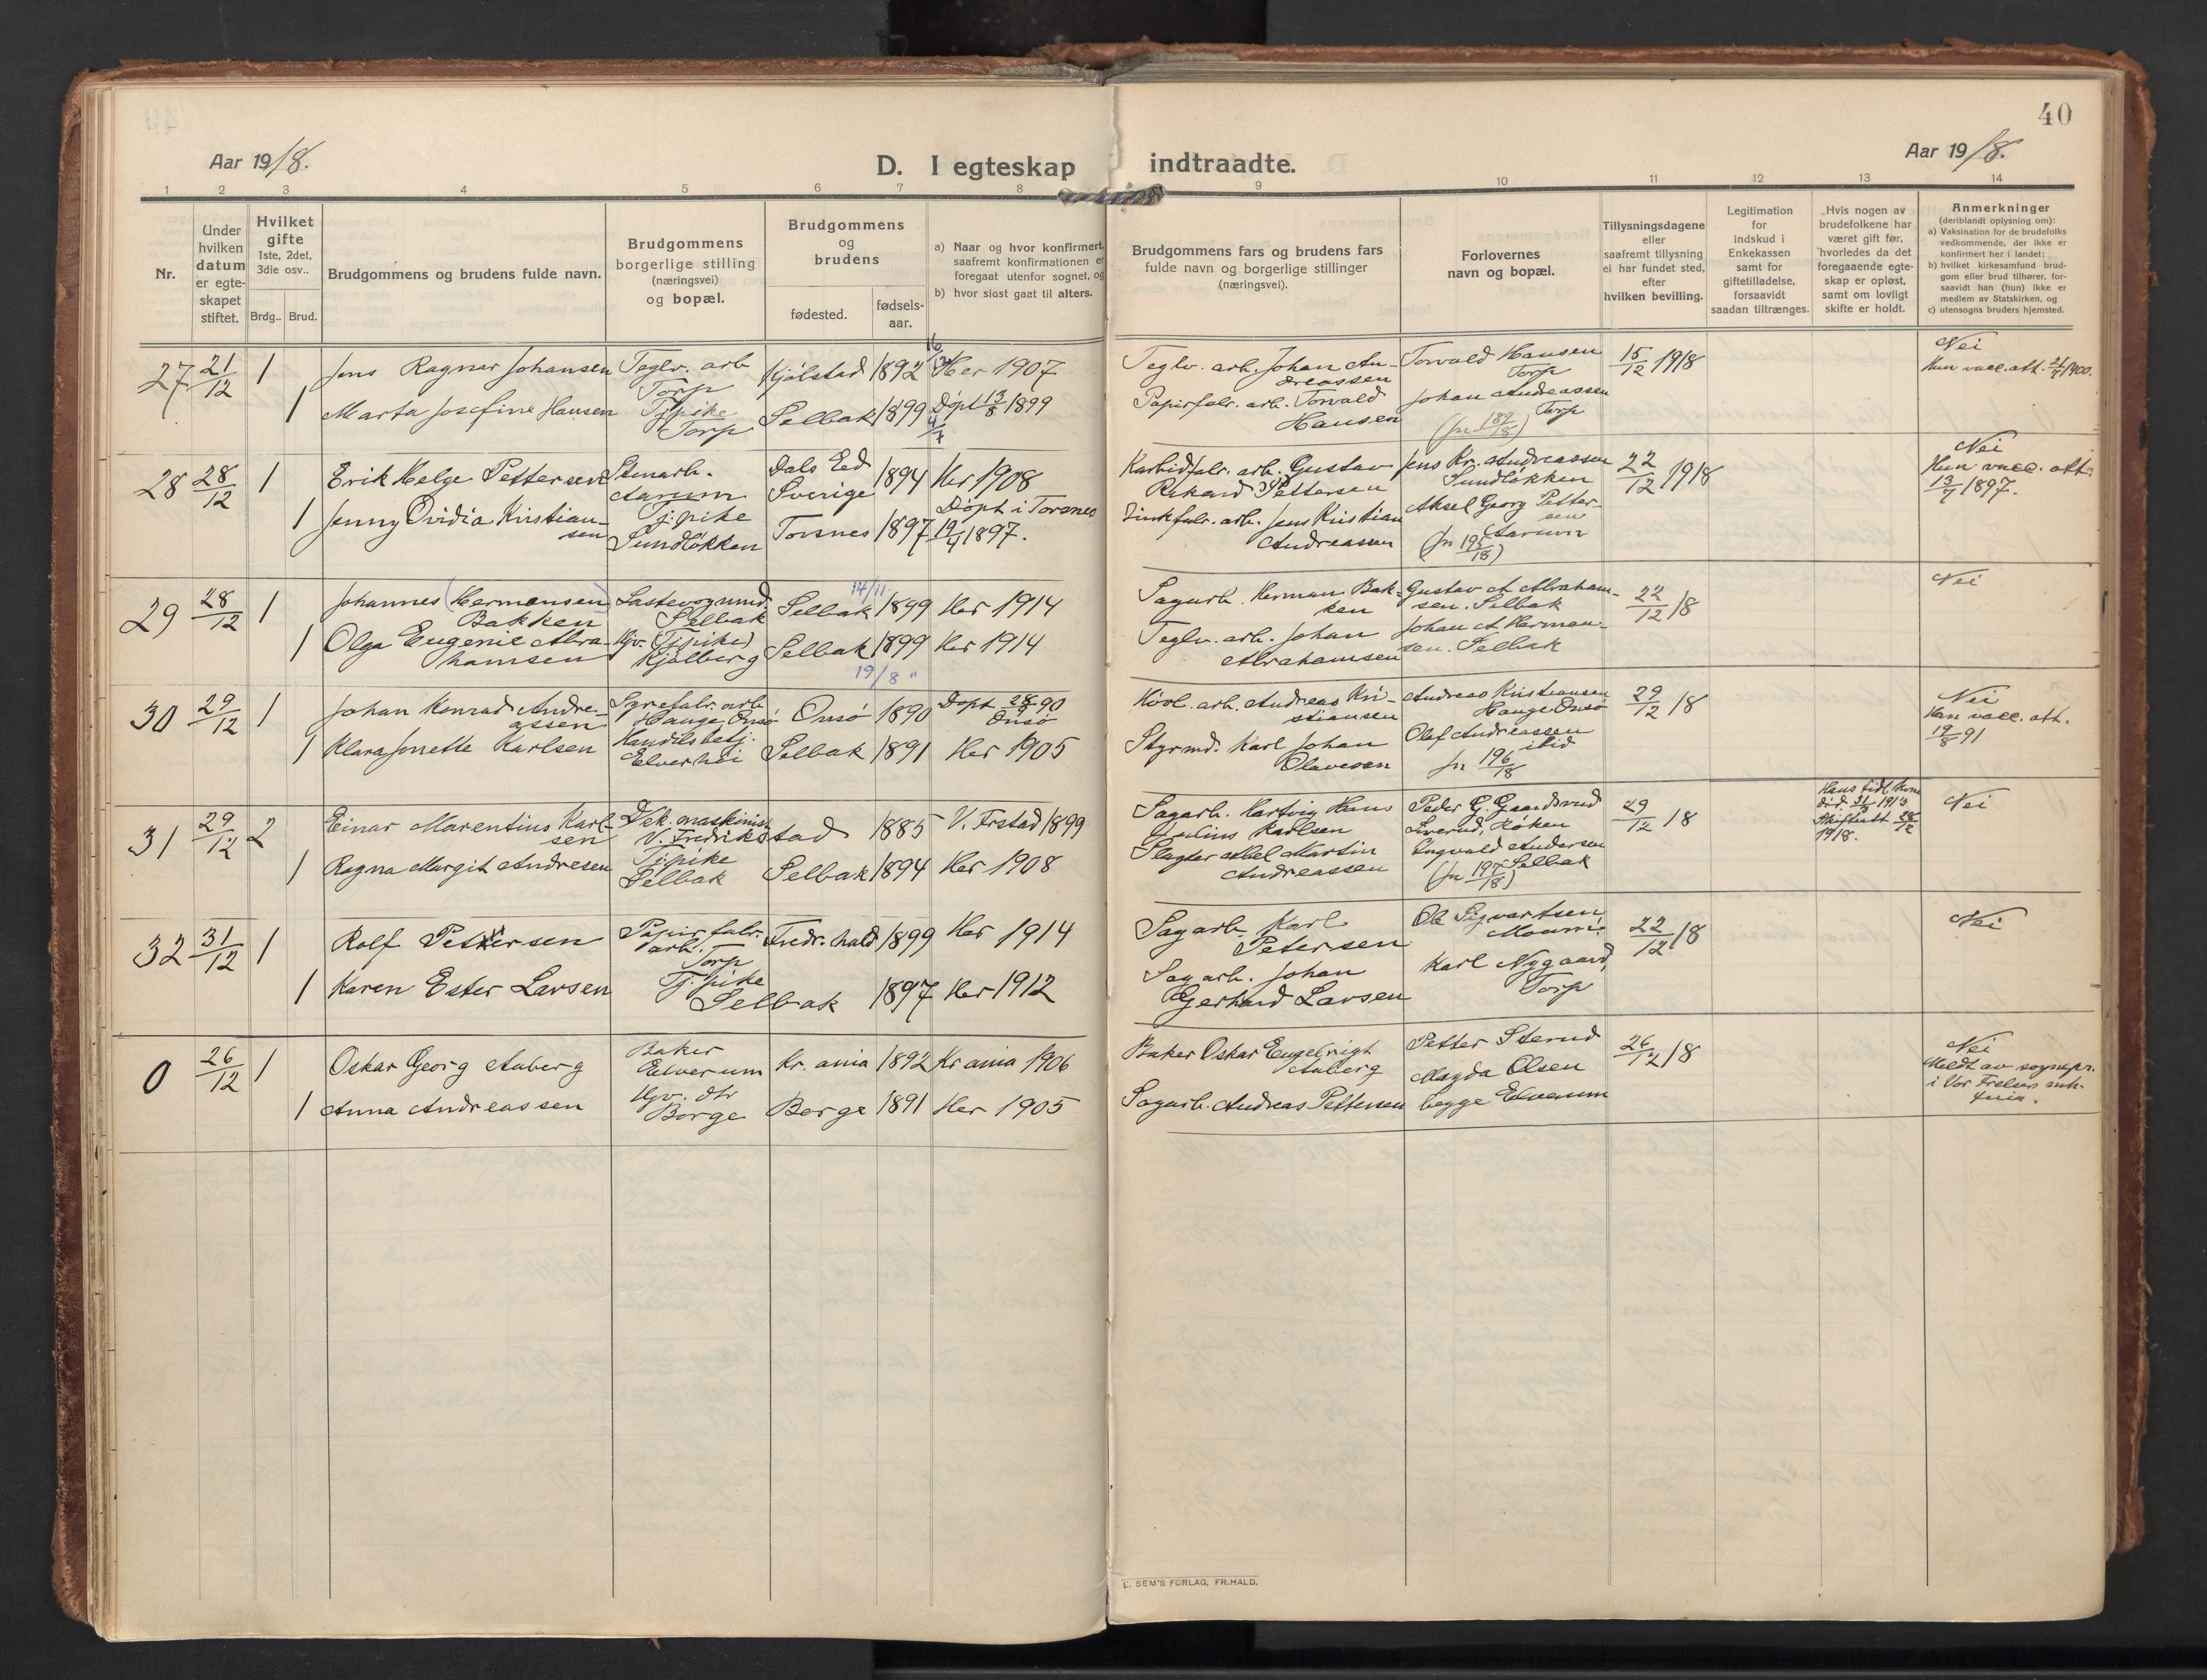 40
Aar 1918.
D. I egteskap indtraadte.
Aar 1918.
1 2 3 4 5 6 7 8 9 10 11 12 13 14
Nr.
Under hvilken datum er egteskapet stiftet.
Hvilket gifte 1ste, 2det, 3die osv..
Brdg.. Brud.
Brudgommens og brudens fulde navn.
Brudgommens borgerlige stilling (næringsvei) og bopæl.
Brudgommens og brudens
fødested.
fødsels-aar.
a) Naar og hvor konfirmert, saafremt konfirmationen er foregaat utenfor sognet, og
b) hvor sidst gaat til alters.
Brudgommens fars og brudens fars
fulde navn og borgerlige stillinger
(næringsvei).
Forlovernes
navn og bopæl.
Tillysningsdagene
eller
saafremt tillysning
ei har fundet sted,
efter
hvilken bevilling.
Legitimation
for
indskud i
Enkekassen
samt for
giftetilladelse,
forsaavidt
saadan tiltrænges.
Hvis nogen av
brudefolkene har
været gift før,
hvorledes da det
foregaaende egte-
skap er opløst,
samt om lovligt
skifte er holdt.
Anmerkninger
(deriblandt oplysning om):
a) Vaksination for de brudefolks
vedkommende, der ikke er
konfirmert her i landet;
b) hvilket kirkesamfund brud-
gom eller brud tilhører, for-
saavidt han (hun) ikke er
medlem av Statskirken, og
c) utensogns bruders hjemsted.
27 21/12 1 Jens Ragnar Johansen Teglv. arb Torp Kjølstad 1892 Her 1907 Teglv. arb. Johan Andreassen Torvald Hansen Torp 15/12 1918 Nei
Hun vacc. att. 21/7 1900.
1 Marta Josefine Hansen Tj.pike Torp Selbak 1899 Døpt 13/8 1899 Papirfabr. arb. Torvald Hansen Johan Andreassen Torp
(jn 189/18)
28 28/12 1 Erik Helge Pettersen Stenarb. Aarum Dals Eed Sverige 1894 Her 1908 Karbidfabr. arb. Gustav Rikard Pettersen Jens Kr. Andreassen Sundløkken 22/12 1918 Nei
Hun vacc. att. 13/7 1897.
1 Jenny Ovidia Kristiansen Tj.pike Sundløkken Torsnes 1897 Døpt i Torsnes 19/4 1897. Zinkfabr. arb. Jens Kristian Andreassen Aksel Georg Pettersen Aarum
(jn 195/18)
29 28/12 1 Johannes (Hermansen) Bakken Lastevognmd. Selbak Selbak 14/11 1899 Her 1914 Sagarb. Herman Bakken Gustav A Abrahamsen. Selbak 22/12 18 Nei
1 Olga Eugenie Abrahamsen Hjv. (Tj.pike) Kjølberg Selbak 1899 Her 1914 Teglv. arb. Johan Abrahamsen Johan A Hermansen. Selbak
19/8 "
30 29/12 1 Johan Konrad Andreassen Syrefabr. arb Hauge, Onsø Onsø 1890 Døpt 28/9 90 Onsø Høvl. arb. Andreas Kristiansen Andreas Kristiansen Hauge Onsø 29/12 18 Nei
Han vacc. att. 19/8 91
1 Klara Jonette Karlsen Handelsbetj. Elverhøi Selbak 1891 Her 1905 Styrmd. Karl Johan Olavesen Olaf Andreassen ibid
jn 196/18
31 29/12 2 Einar Marentius Karlsen Dek. maskinist V. Fredrikstad 1885 V. Frstad 1899 Sagarb. Hartvig Hans Julius Karlsen Peder G. Gaardsrud Liverud, Røken 29/12 18 Hans tidl. kone død 1913 Skifteatt 28/12 1918. Nei
1 Ragna Margit Andresen Tj.pike Selbak Selbak 1894 Her 1908 Slagter Abel Martin Andreassen Ingvald Andersen Selbak
(jn 197/18)
32 31/12 1 Rolf Petersen Papirfabr. arb. Torp Fredr.hald 1899 Her 1914 Sagarb. Karl Petersen Ole Sigvartsen, Moum. 22/12 18 Nei
1 Karen Ester Larsen Tj.pike Selbak 1897 Her 1912 Sagarb. Johan Gerhard Larsen Karl Nygaard, Torp
0 26/12 1 Oskar Georg Auberg Baker Elverum Kr.ania 1892 Kr ania 1906 Baker Oskar Engelrigt Auberg Petter Sterud 26/12 18 Nei
Meldt av sognepr. i Vor Frelsers
1 Anna Andreassen Hjv. dtr Borge Borge 1891 Her 1905 Sagarb. Andreas Pettersen Magda Olsen begge Elverum
E. SEM'S FORLAG, FR.HALD.